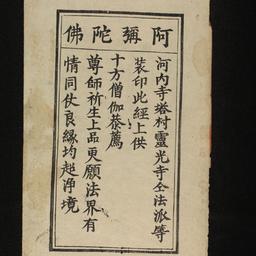 阿彌陀佛
河内寺塔村靈光寺仝法派等
裝印此經上供
十方僧伽恭薦
尊師祈生上品更願法界有
情同仗良緣均超净境